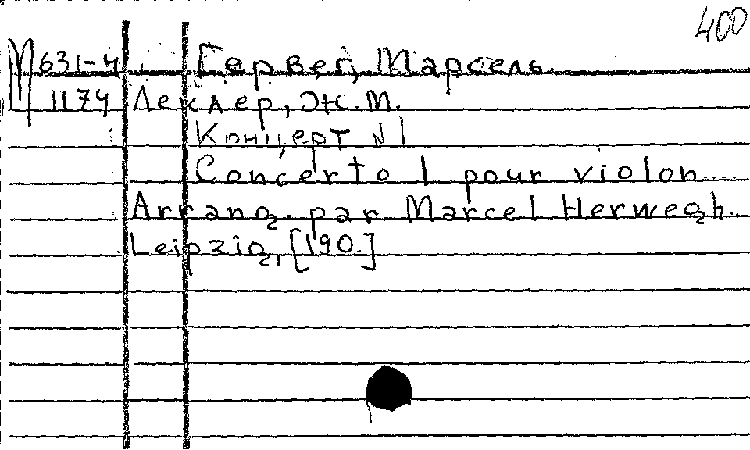 400
М 631-4 Гервег, Марсель.
1174 Леклер, Ж. М.
Концерт №1
Concerto 1 pour violon.
Arrang. par Marcel Herwegh.
Leipzig, [190.]